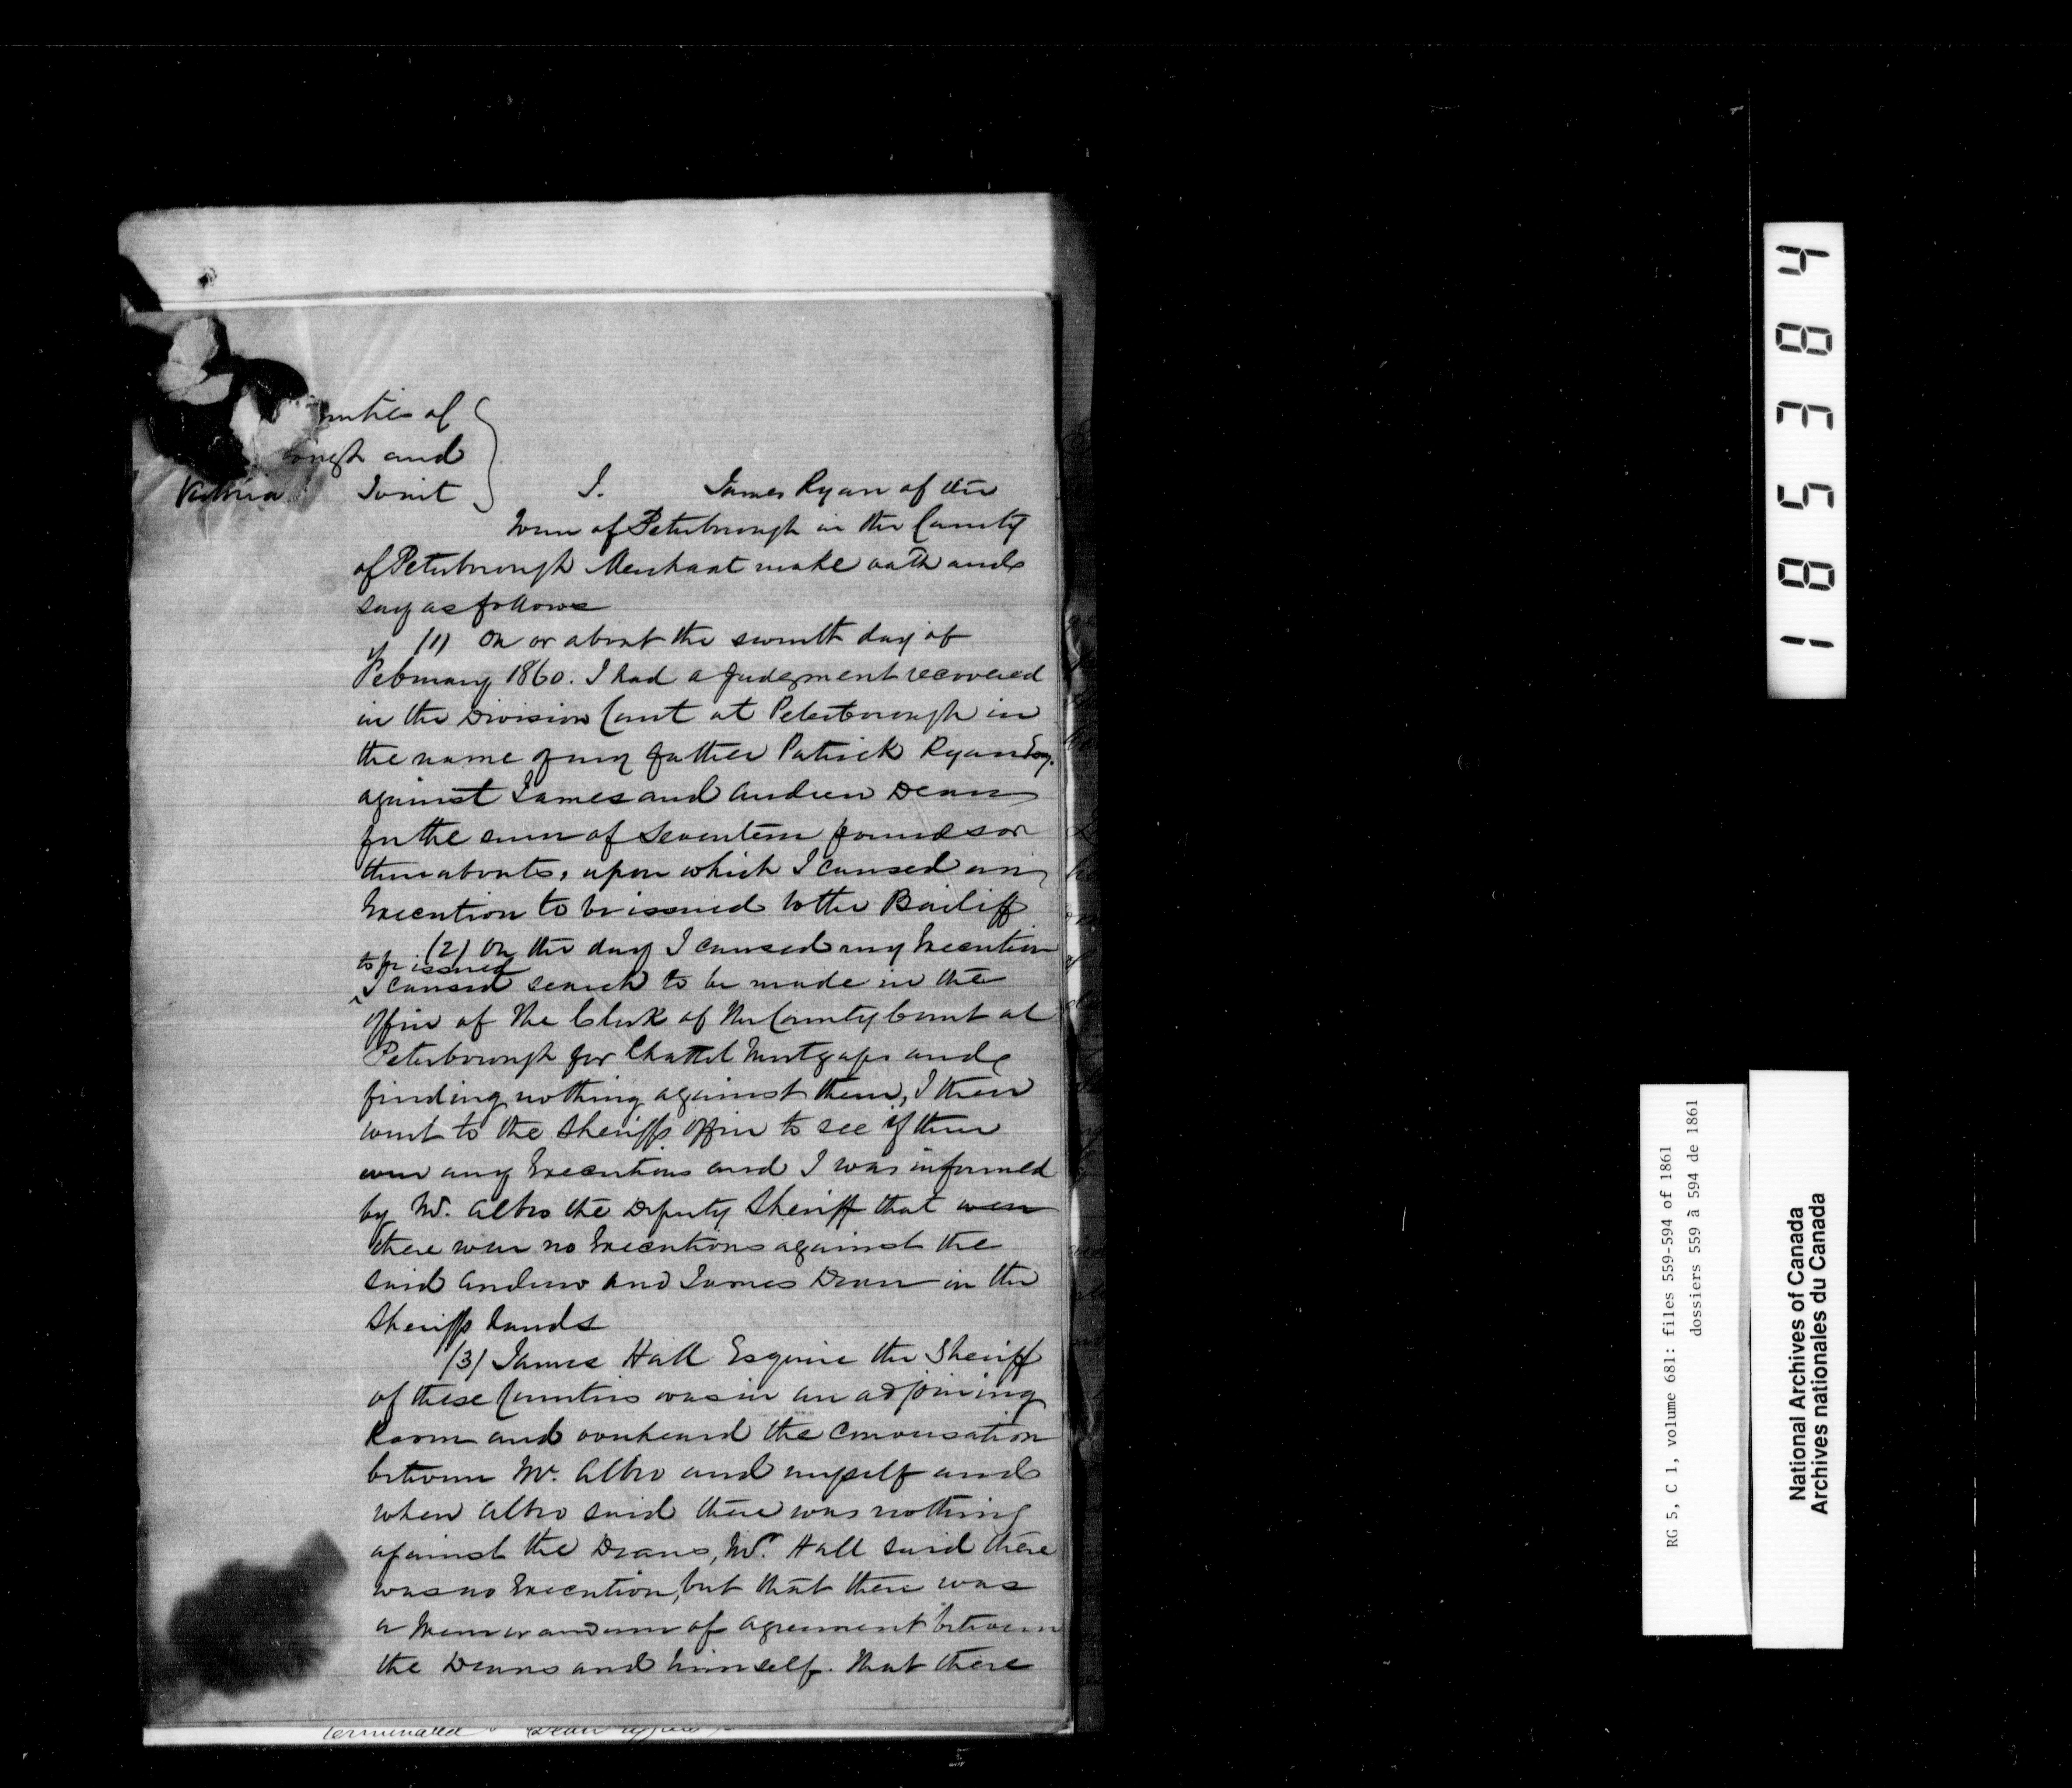 unties of
ough and
Victoria Towit } I. James Ryan of the
Town of Peterborough in the County
of Peterborough Merchant make oath and
say as follows
(1) On or about the seventh day of
February 1860. I had a Judgment recovered
in the Division Court at Peterborough in
the name of my father Patrick Ryan Esq.
against James and Andrew Dean
for the sum of Seventeen pounds or
thereabouts, upon which I caused an
Execution to be issued to the Bailiff
(2) On the day I caused my Execution
to be issued
^ I caused search to be made in the
office of the Clerk of the County Court at
Peterborough for Chattel Mortgages and
finding nothing against them, I then
went to the Sheriffs office to see if there
were any Executions and I was informed
by Mr. Albro the Deputy Sheriff that were
there were no Executions against the
said Andrew and James Dean in the
Sheriffs hands
(3) James Hall Esquire the Sheriff
of these Counties was in an adjoining
Room and overheard the conversation
between Mr. Albro and myself and
when Albro said there was nothing
against the Deans, Mr. Hall said there
was no Execution, but that there was
a Memorandum of agreement between
the Deans and himself. that there
terminated Dean
1 8 5 3 8 4
RG 5, C 1, volume 681: files 559-594 of 1861
dossiers 559 à 594 de 1861
National Archives of Canada
Archives nationales du Canada